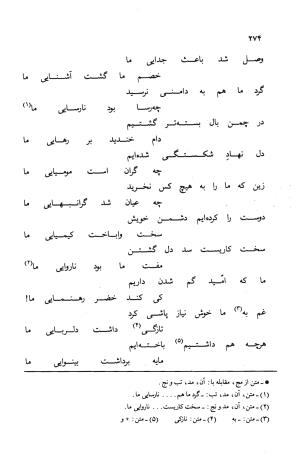 ۲۷۴
وصل شد باعث جدایی ما
خصم ما گشت آشنایی ما
گرد ما هم به دامنی نرسید
چه‌رسا بود نارسایی ما(۱)
در چمن بال بسته‌تر گشتیم
دام خندید بر رهایی ما
دل نهادِ شکستگی شده‌ایم
چه گران است مومیایی ما
زین که ما را به هیچ کس نخرید
چه عیان شد گرانبهایی ما
دوست را کرده‌ایم دشمن خویش
سخت واباخت کیمیایی ما
سخت کاریست سد دل گشتن
مفت ما بود ناروایی ما(۲)
ما که امّید گم شدن داریم
کی کند خضر رهنمایی ما!
غم به(۳) ما خوش نیاز پاشی کرد
تازگی(۴) داشت دلربایی ما
هرچه هم داشتیم(۵) باخته‌ایم
مایه برداشت بینوایی ما
● ـ متن از مج، مقابله با: آن، مد، تب و نج.
(۱)ـ متن، آن، مد، تب: ـ گرد ما هم .... نارسایی ما.
(۲)ـ متن، آن، مد و نج: ـ سخت کاریست... ناروایی ما.
(۳)ـ متن: ـ به (۴)ـ متن: نازکی (۵)ـ متن: + و